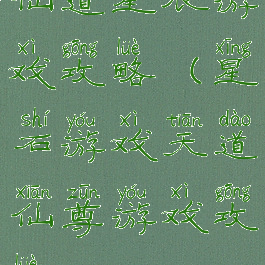 仙道星辰游
xì gōng lüè xīng
戏攻略（星
shí yóu xì tiān dào
石游戏天道
xiān zūn yóu xì gōng
仙尊游戏攻
lüè